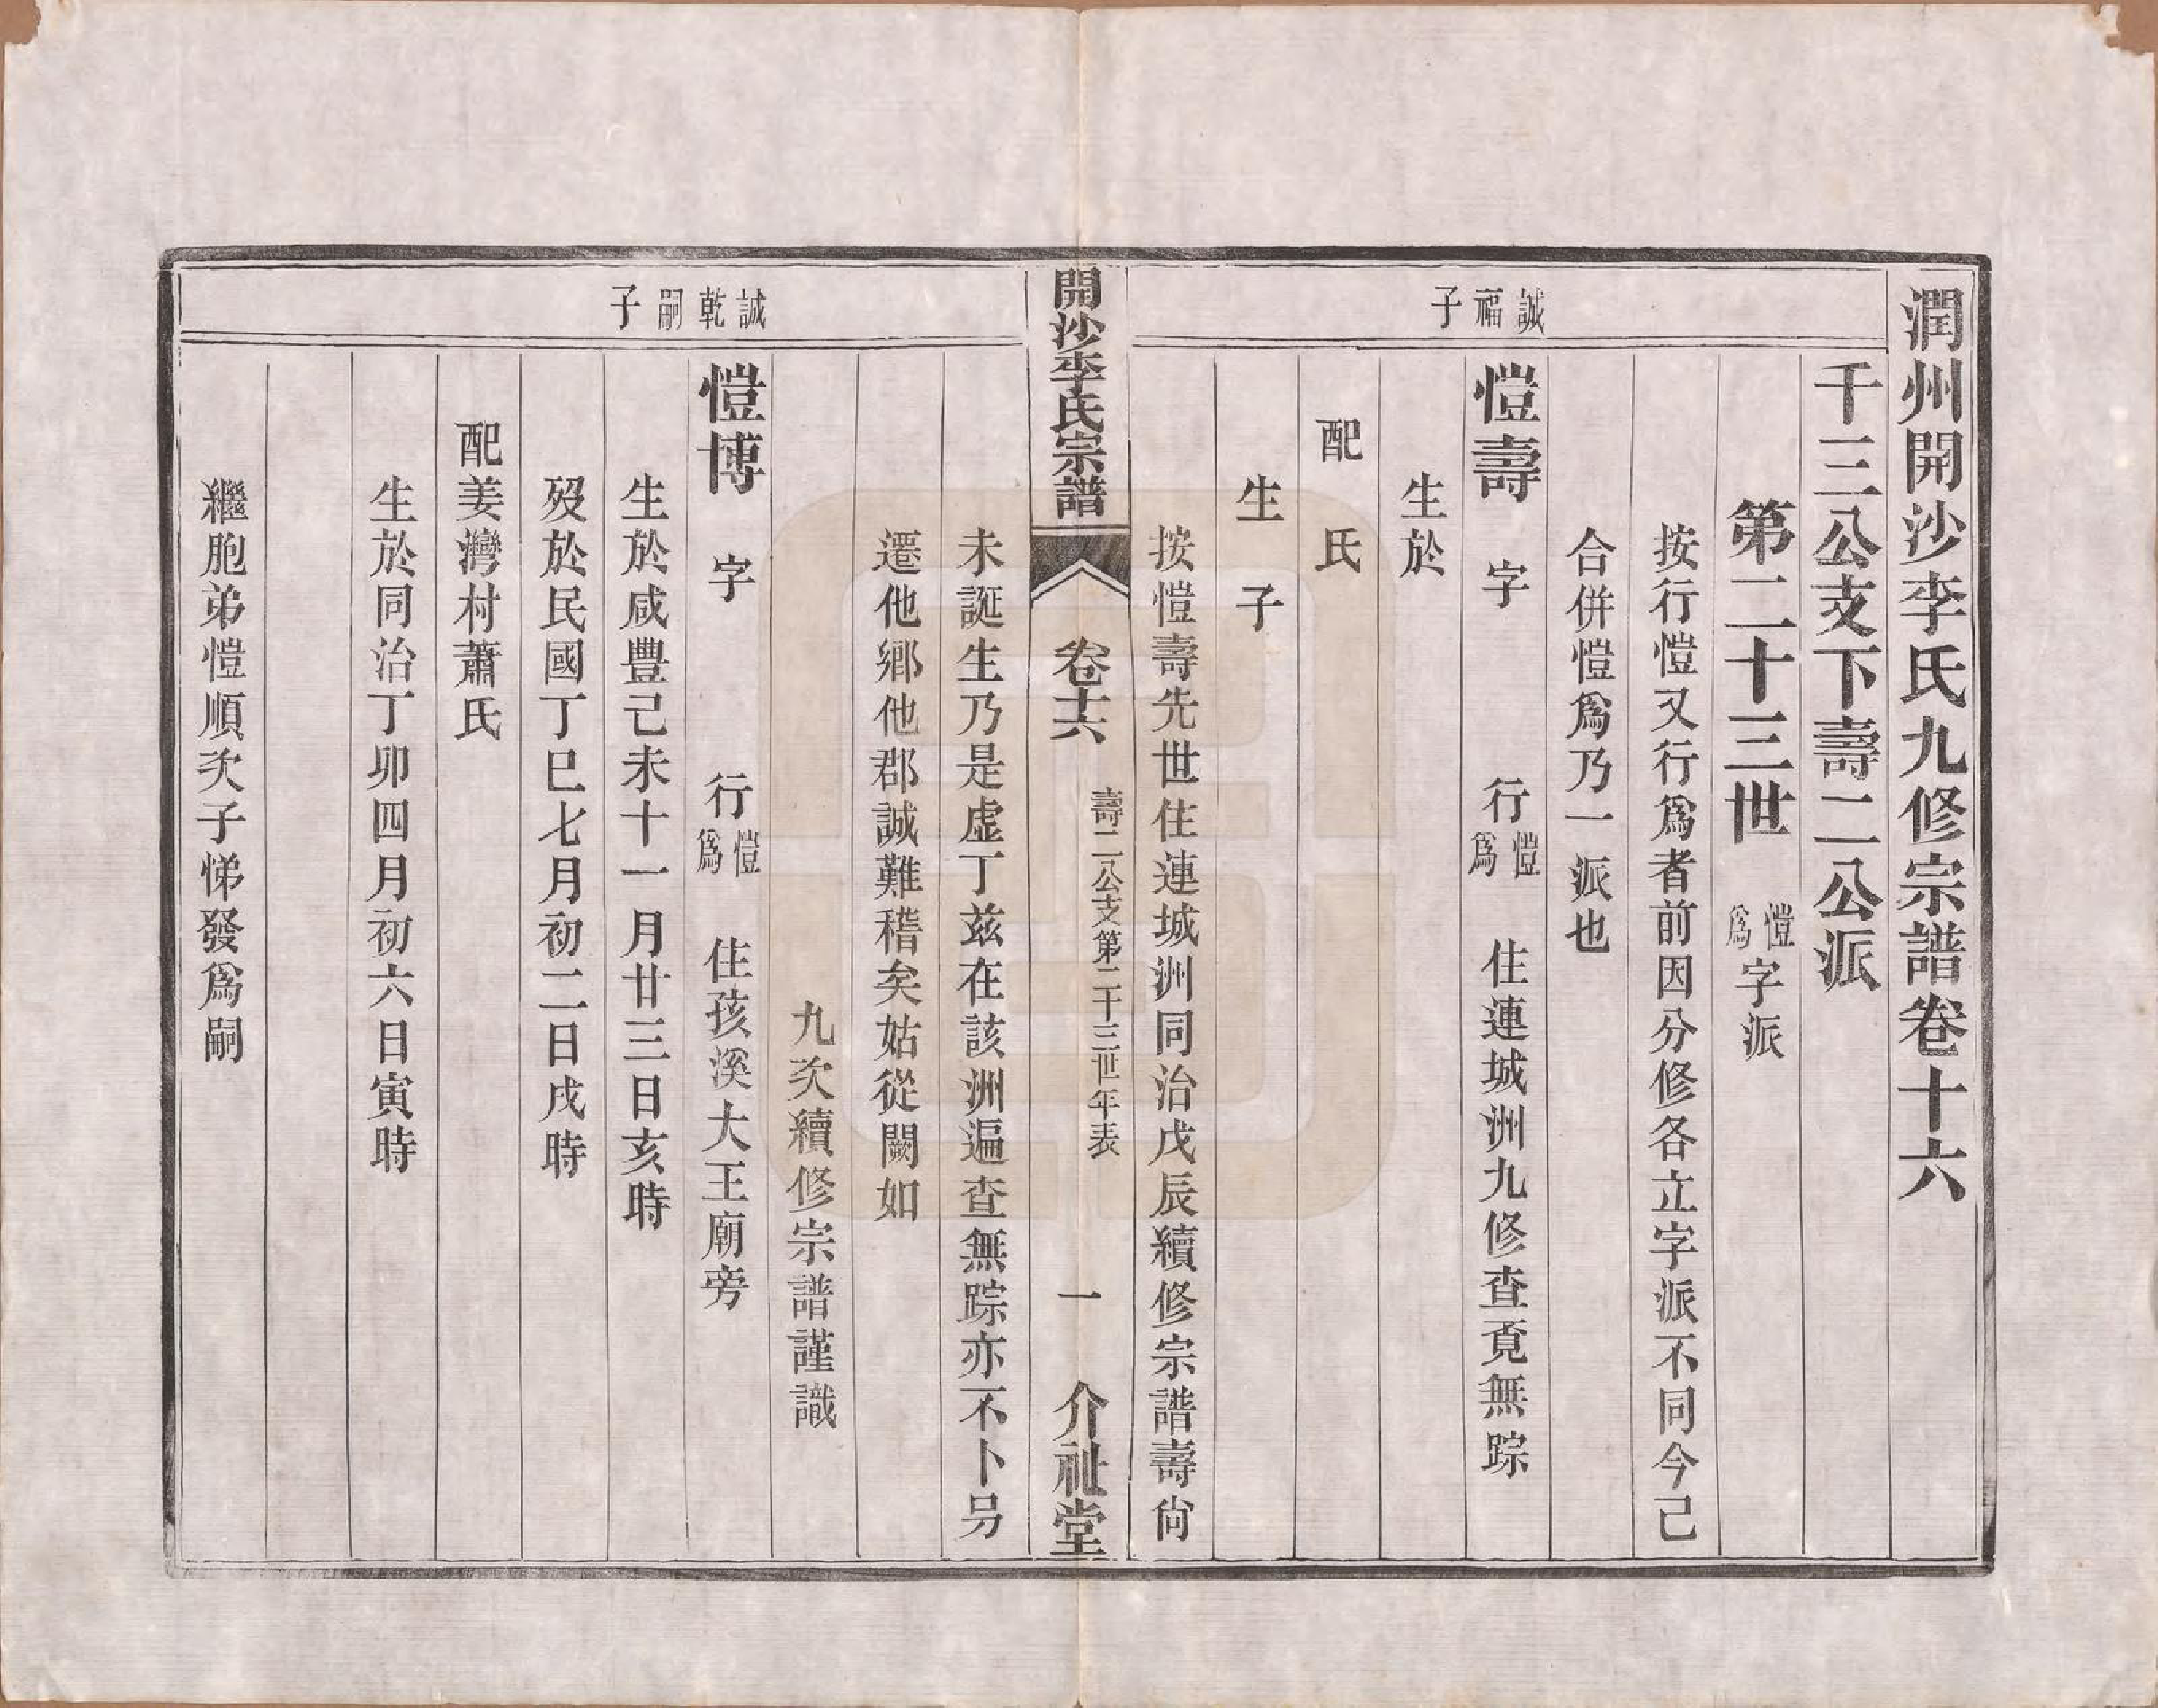 潤州開沙李氏九修宗譜卷十六
千三公支下壽二公派
第二十三世 愷爲字派
按行愷又行爲者前因分修各立字派不同今己
合併愷爲乃一派也
誠福子
愷壽 字 行愷爲 住連城洲九修查覔無踪
生於
配 氏
生 子
按愷壽先世住連城洲同治戊辰續修宗譜壽尙
開沙李氏宗譜 卷十六 壽二公支第二十三世年表 一 介祉堂
未誕生乃是虛丁兹在該洲遍查無踪亦不卜另
遷他鄉他郡誠難稽矣姑從闕如
九次續修宗譜謹識
誠乾嗣子
愷博 字 行愷爲 住孩溪大王廟旁
生於咸豐己未十一月廿三日亥時
歿於民國丁巳七月初二日戌時
配姜灣村蕭氏
生於同治丁卯四月初六日寅時
繼胞弟愷順次子悌發爲嗣